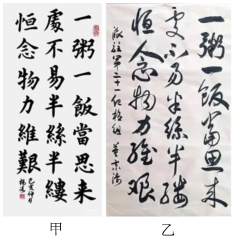 一粥一飯當思来
處不易半絲半縷
恒念物力維艱
甲
一粥一飯當思来
處不易半絲半縷
恒念物力維艱
乙